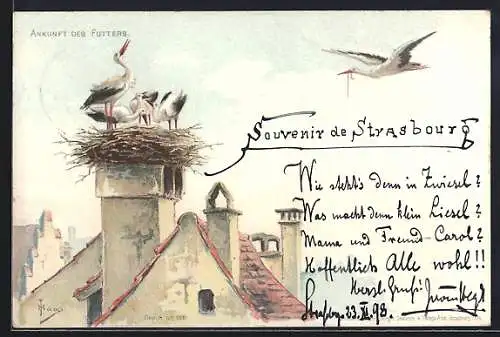 ANKUNFT DES FUTTERS.
Souvenir de Strasbourg
Wie steht's denn in Zwiesel?
Was macht denn klein Liesel?
Mama und Freund-Carol?
Hoffentlich Alle wohl!!
Herzl. Gruß!
Strassbg. 23. XI. 98.